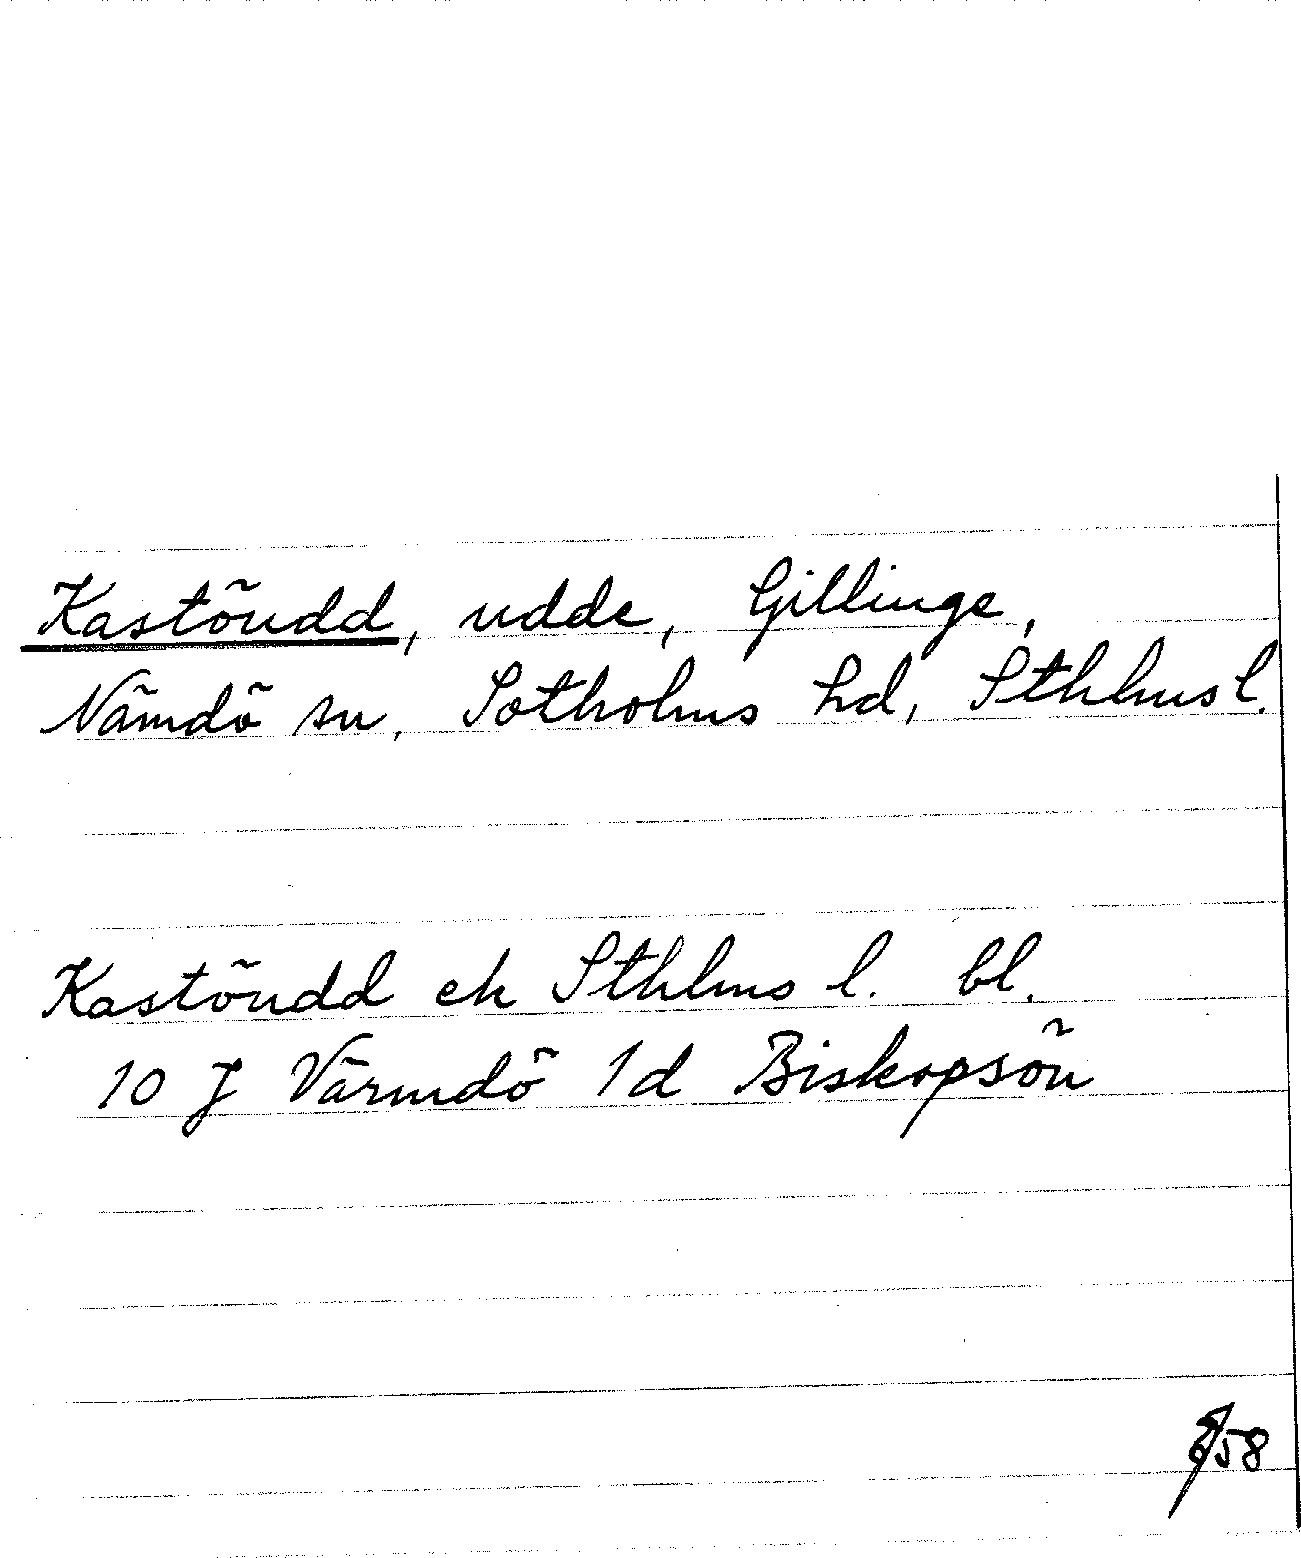 Kastöudd, udde, Gillinge,
Nämdö sn, Sotholms hd, Sthlms l.
Kastöudd ek Sthlms l. bl.
10 J Värmdö 1d Biskopsön